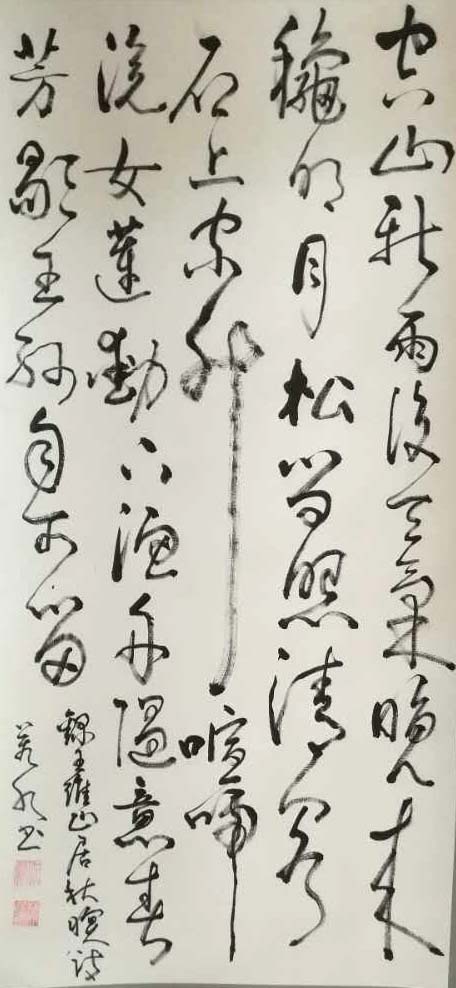 空山新雨後天氣晚來
龝明月松間照清泉
石上流竹喧
浣女蓮動下漁舟隨意春
芳歇王孫自可留
錄王維山居秋暝詩